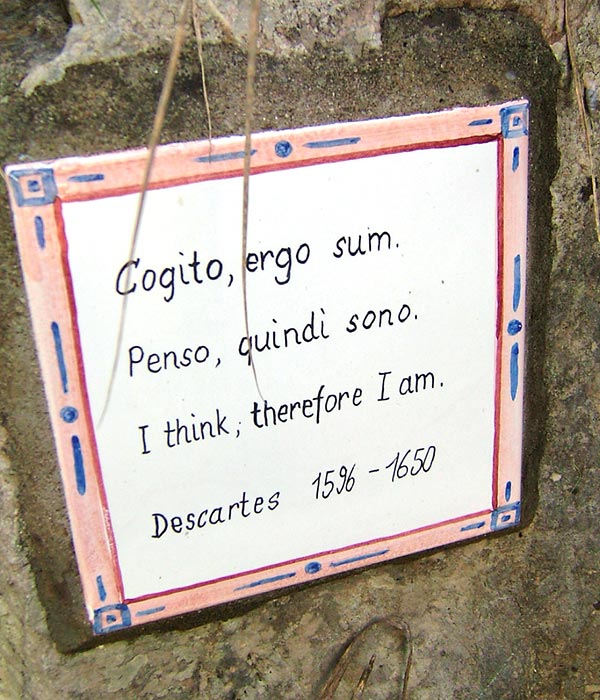 Cogito, ergo sum.
Penso, quindi sono.
I think, therefore I am.
Descartes 1596 - 1650